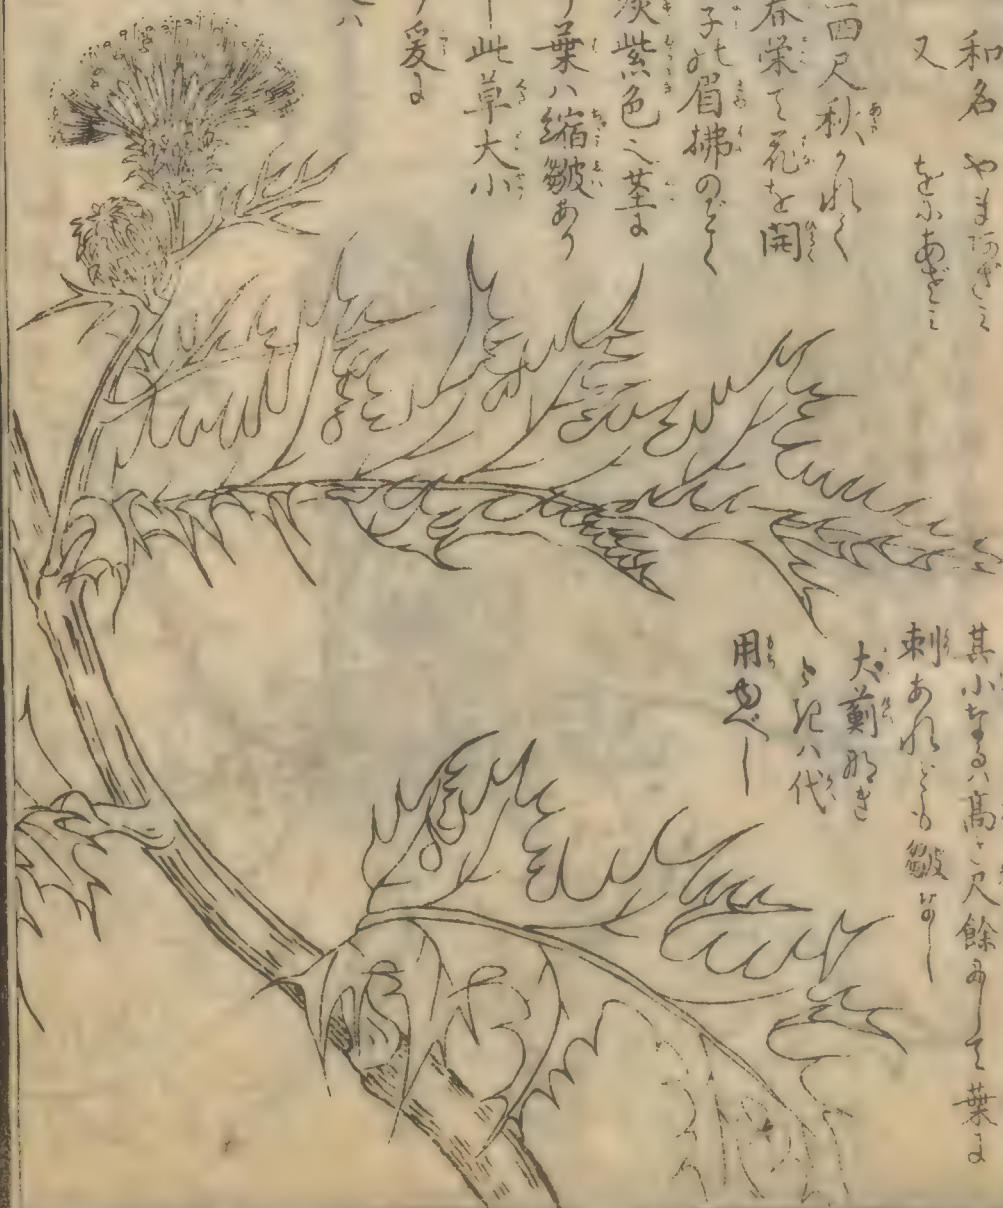 和名 やまあざみ
又 をにあざミ
四尺秋かれて
春栄て花を開
子の眉拂のごとく
淡紫色之茎に
葉ハ縮皺あり
此草大小
爰に
ハ
其小なるハ高さ尺餘にして葉に
刺あれども皺なし
大薊なき
ときハ代
用ゆべし